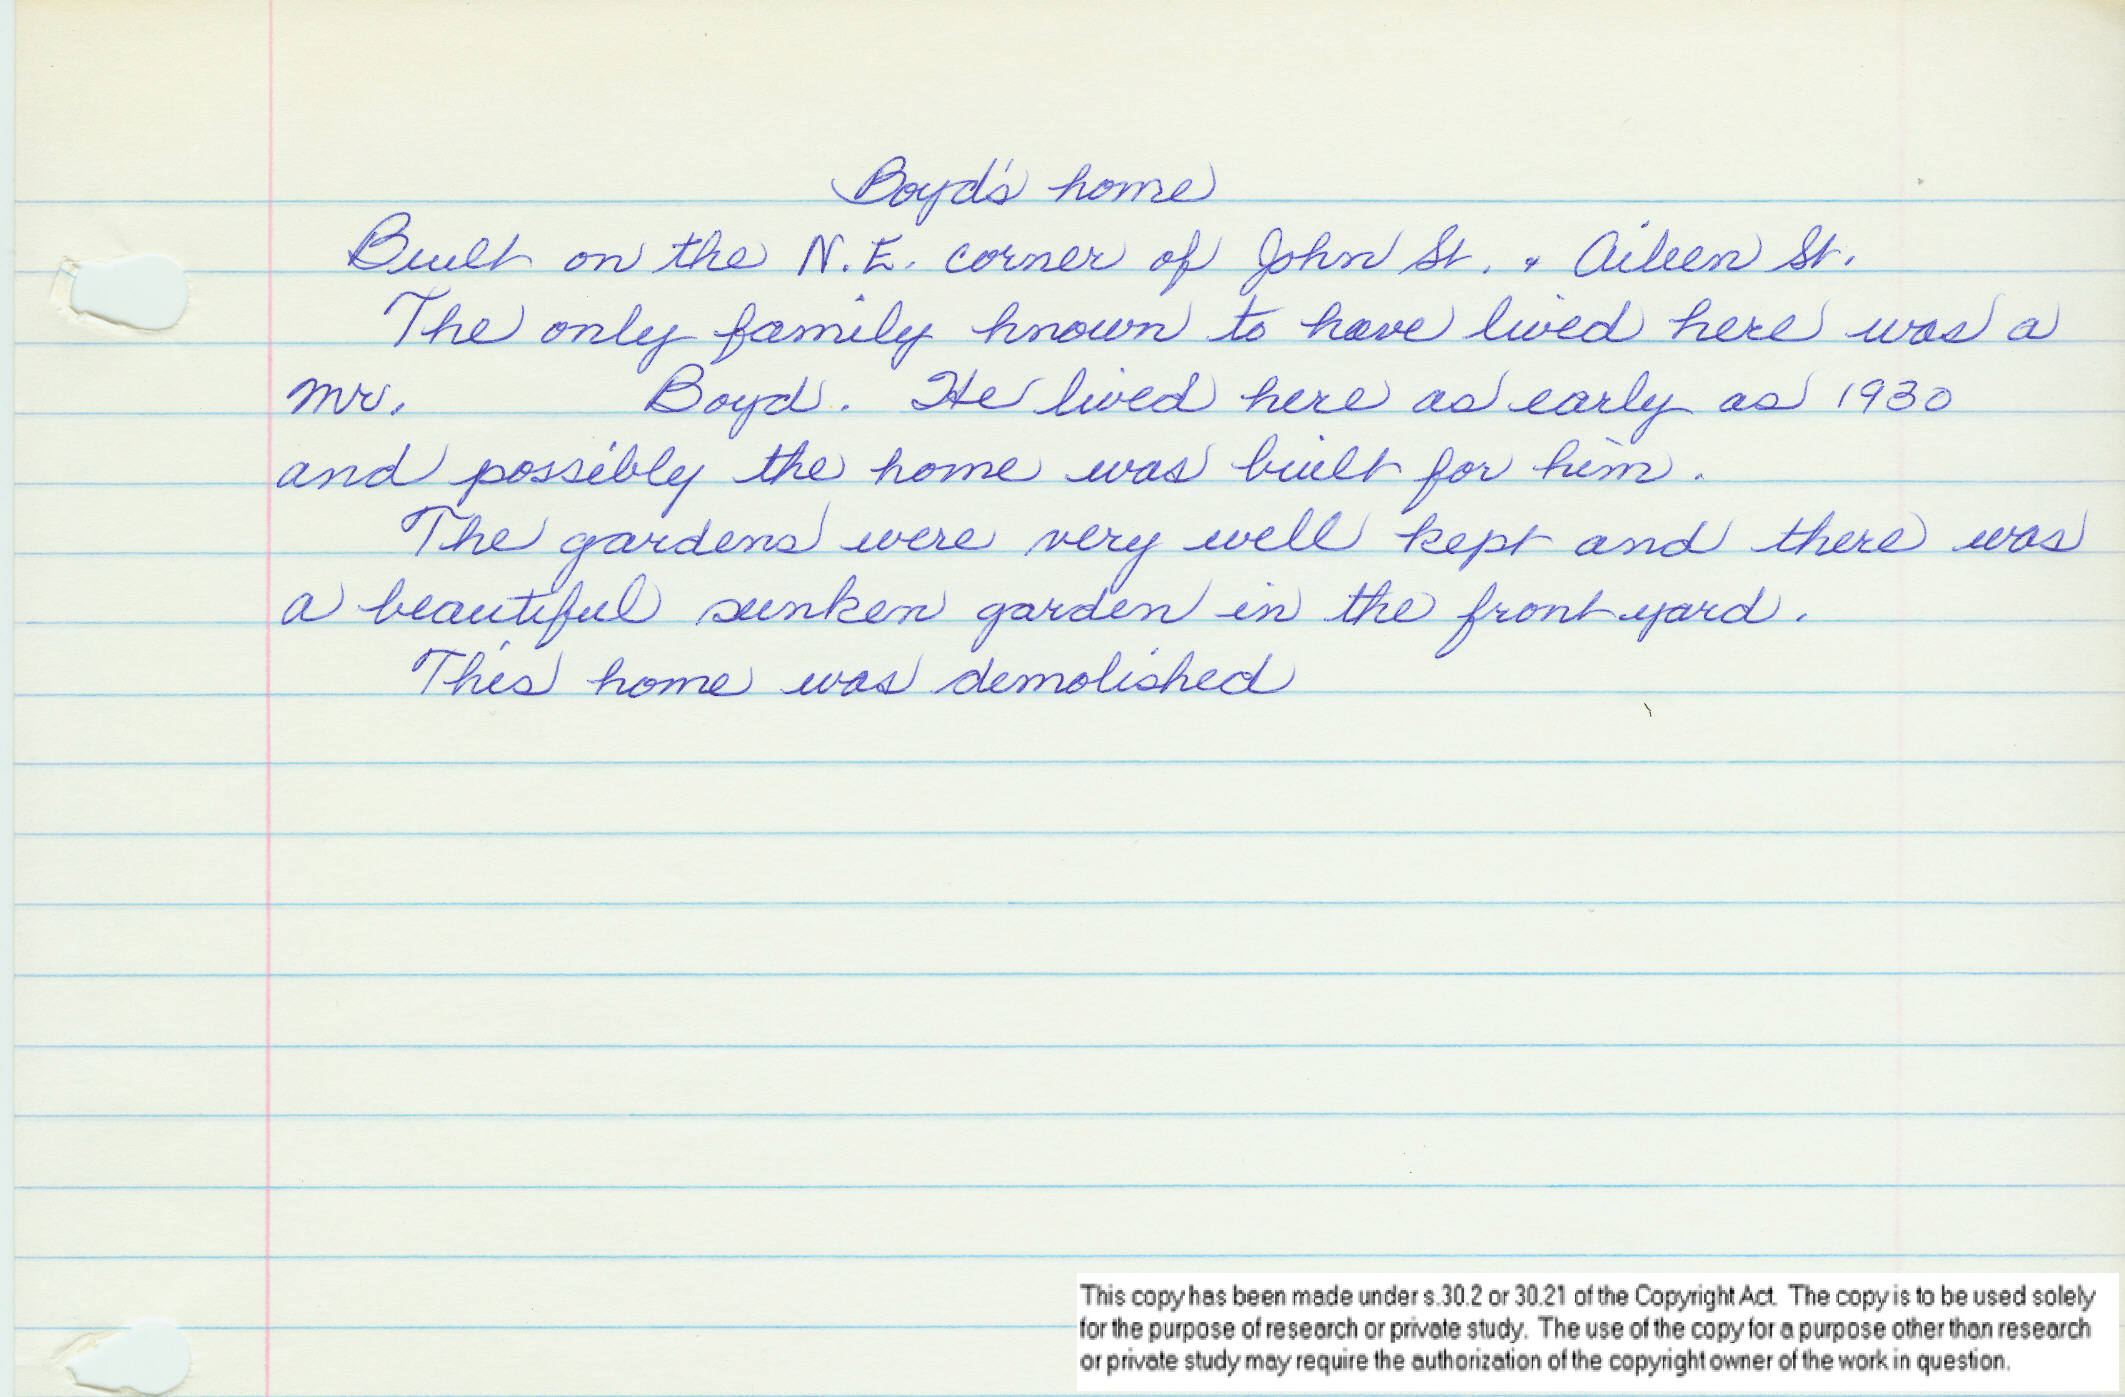 Boyd's home
Built on the N.E. corner of John St. & Aileen St.
The only family known to have lived here was a
Mr. Boyd. He lived here as early as 1930
and possibly the home was built for him.
The gardens were very well kept and there was
a beautiful sunken garden in the front yard.
This home was demolished
This copy has been made under s.30.2 or 30.21 of the Copyright Act. The copy is to be used solely
for the purpose of research or private study. The use of the copy for a purpose other than research
or private study may require the authorization of the copyright owner of the work in question.